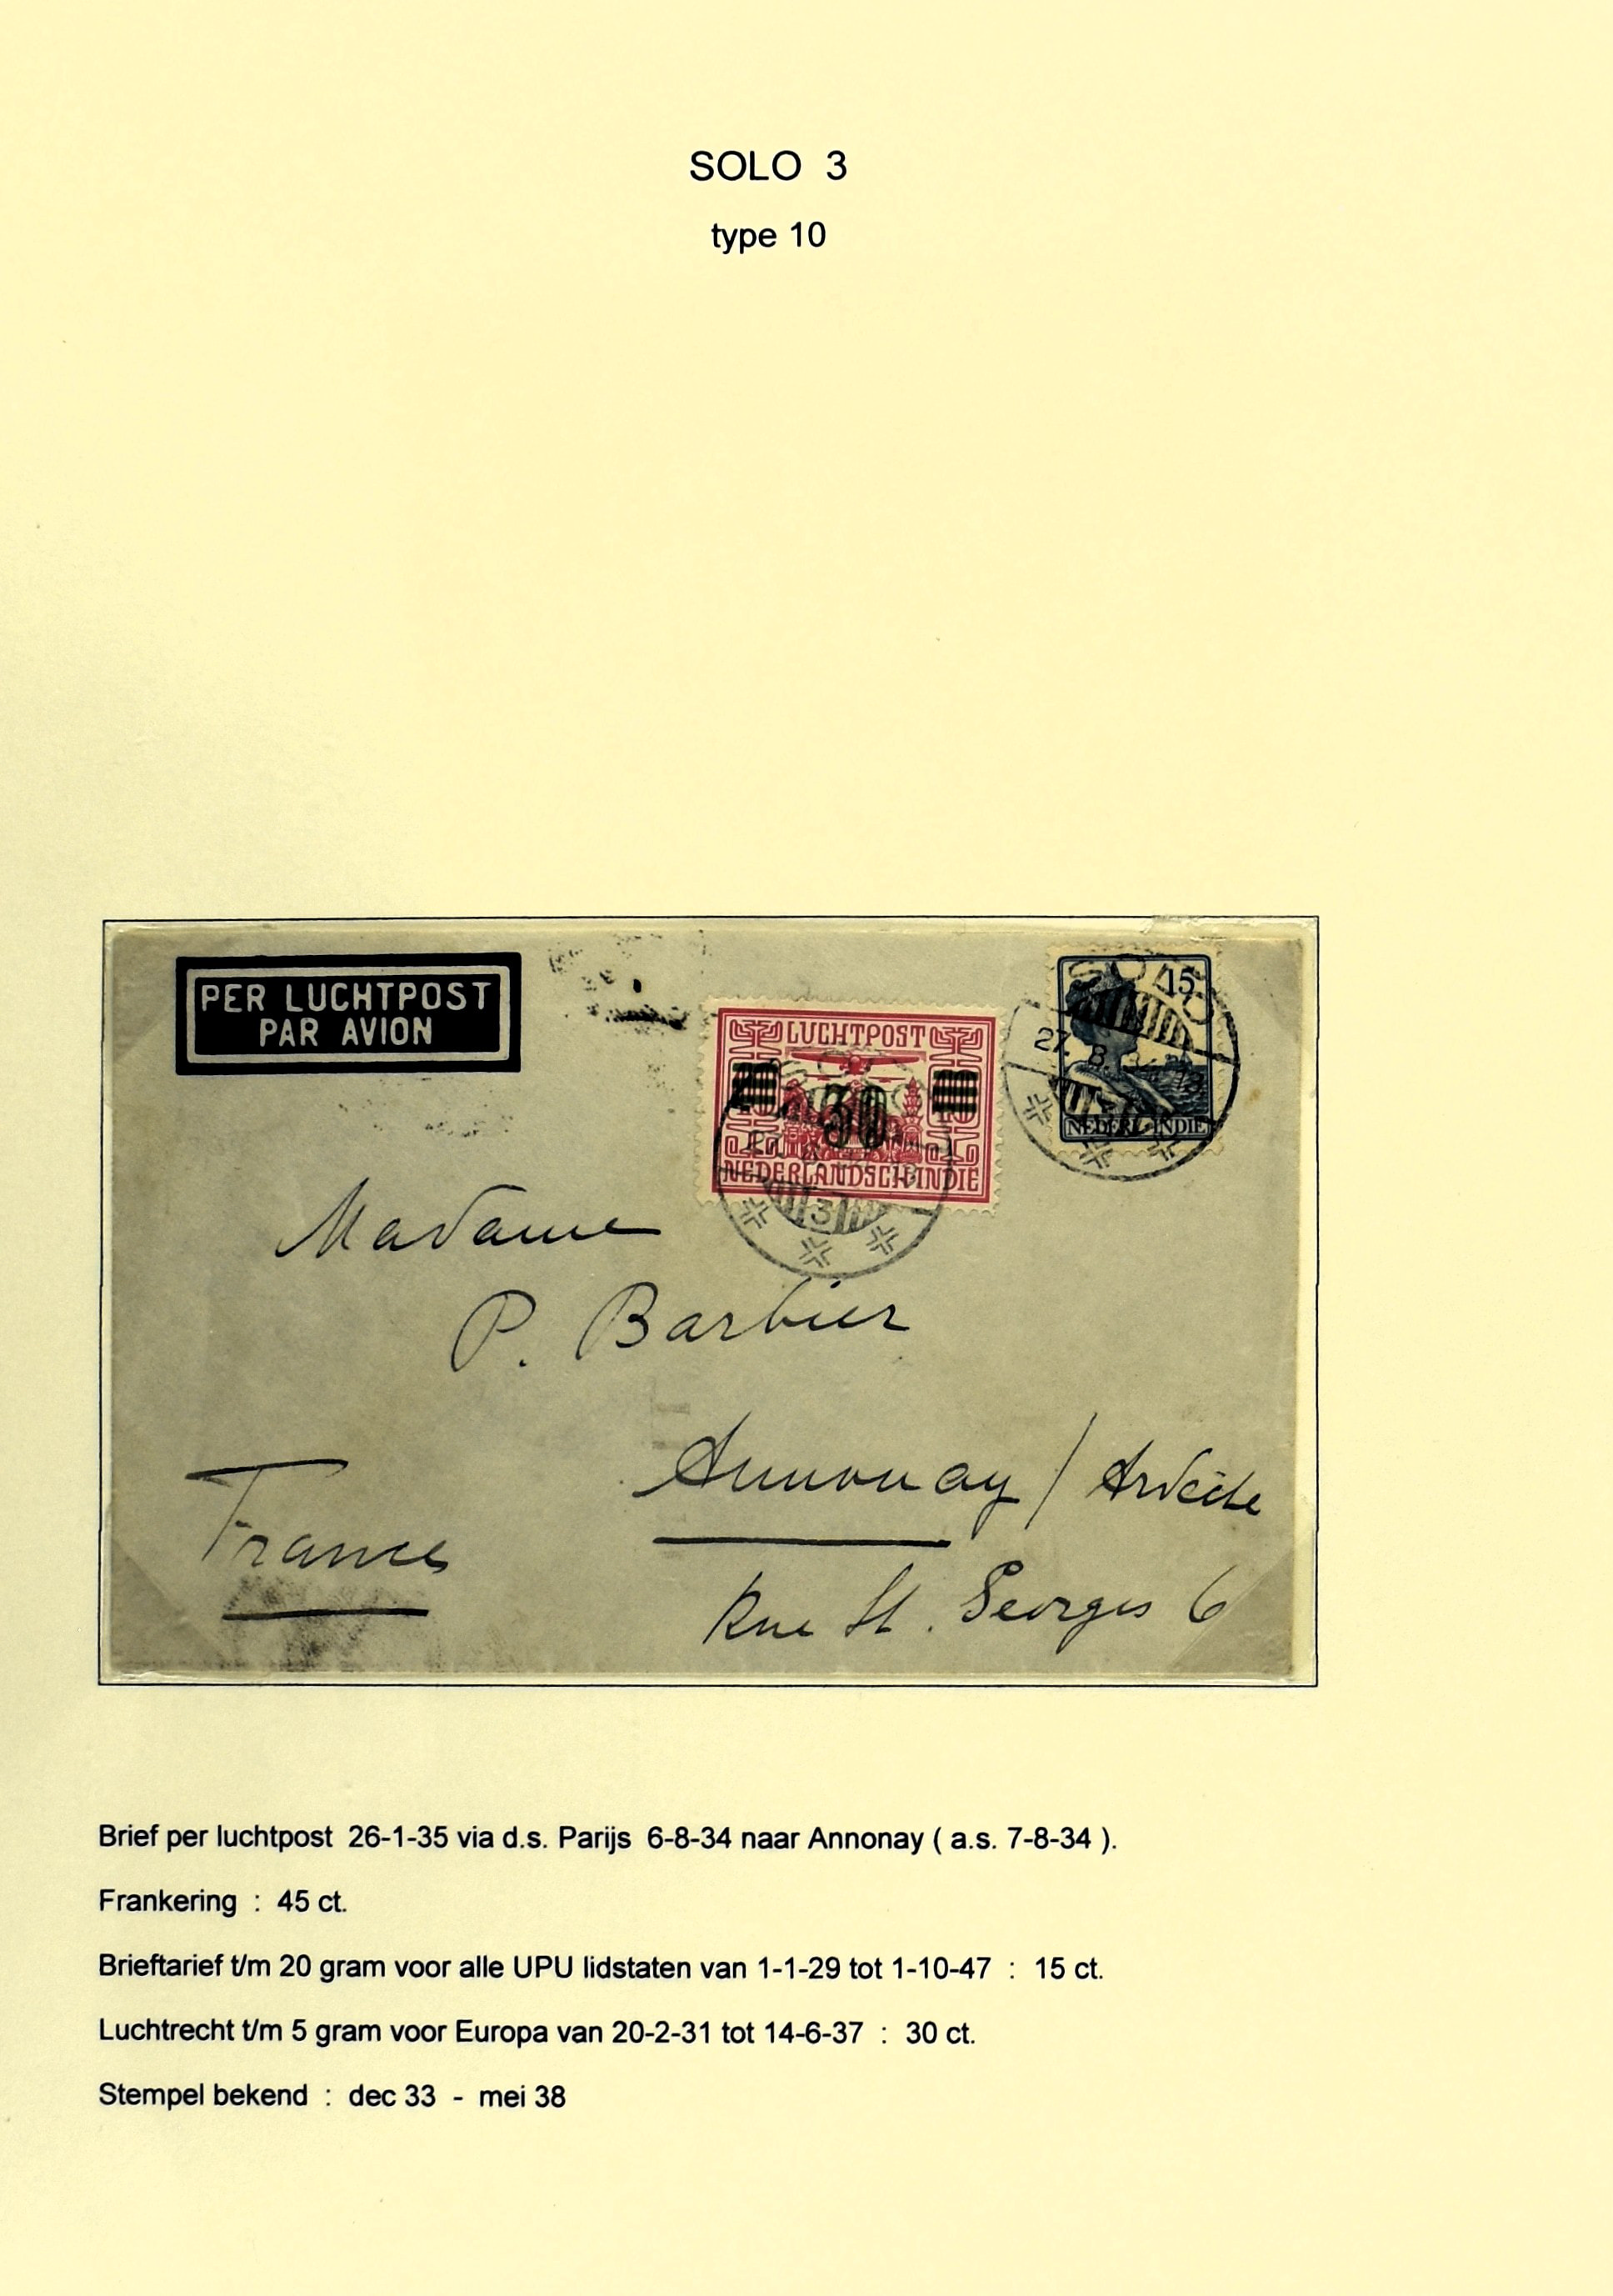 SOLO 3
type 10
PER LUCHTPOST
PAR AVION
LUCHTPOST
30
NEDERLANDSCH INDIE
3
15
27. 8.
NEDERL. INDIE
Madame
P. Barbier
Annonay / Ardèche
France
Rue St. Georges 6
Brief per luchtpost 26-1-35 via d.s. Parijs 6-8-34 naar Annonay ( a.s. 7-8-34 ).
Frankering : 45 ct.
Brieftarief t/m 20 gram voor alle UPU lidstaten van 1-1-29 tot 1-10-47 : 15 ct.
Luchtrecht t/m 5 gram voor Europa van 20-2-31 tot 14-6-37 : 30 ct.
Stempel bekend : dec 33 - mei 38